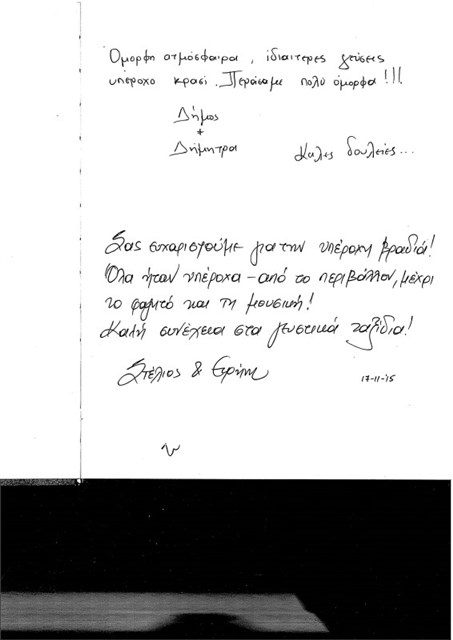 Όμορφη ατμόσφαιρα, ιδιαίτερες γεύσεις
υπέροχο κρασί. Περάσαμε πολύ όμορφα!!!
Δήμος
+
Δήμητρα
Καλές δουλειές...
Σας ευχαριστούμε για την υπέροχη βραδιά!
Όλα ήταν υπέροχα - από το περιβάλλον, μέχρι
το φαγητό και τη μουσική!
Καλή συνέχεια στα γευστικά ταξίδια!
Στέλιος & Ειρήνη
17-11-15